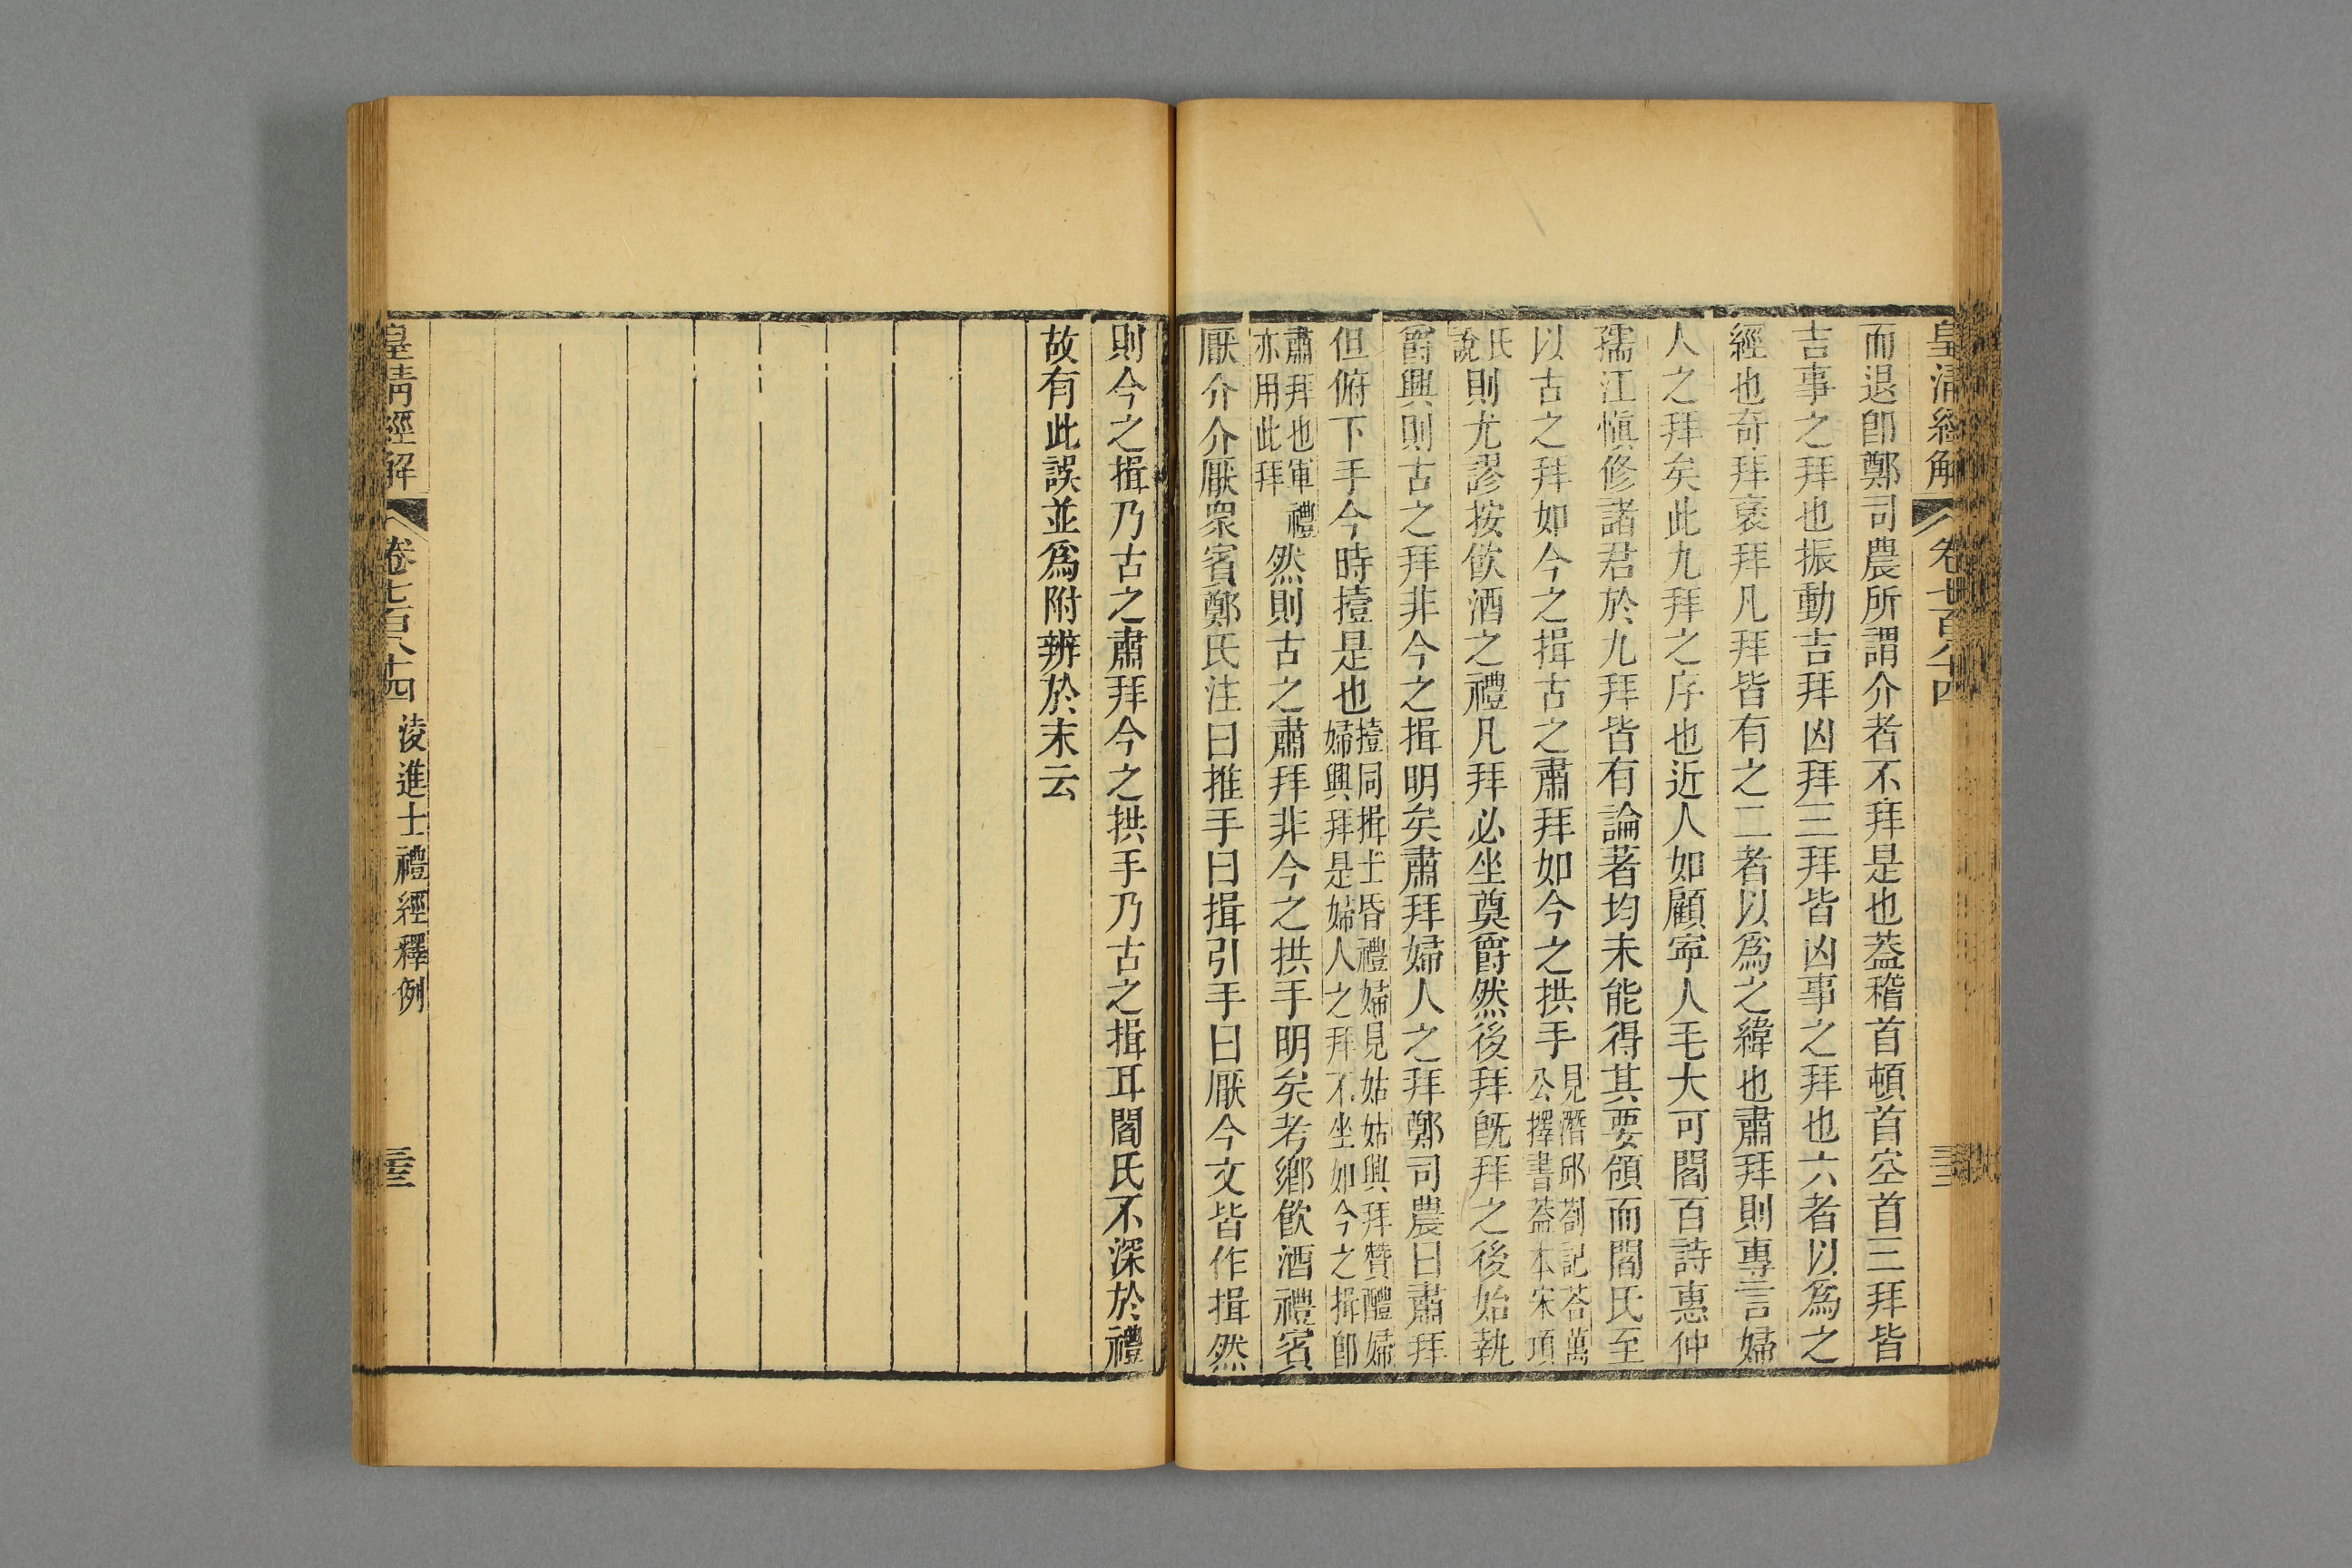 皇清經解 卷七百八十四
而退卽鄭司農所謂介者不拜是也葢稽首頓首空首三拜皆
吉事之拜也振動吉拜凶拜三拜皆凶事之拜也六者以爲之
經也奇拜褒拜凡拜皆有之二者以爲之緯也肅拜則專言婦
人之拜矣此九拜之序也近人如顧寧人毛大可閻百詩惠仲
孺江愼修諸君於九拜皆有論著均未能得其要領而閻氏至
以古之拜如今之揖古之肅拜如今之拱手見潛邱劄記荅萬公擇書葢本宋項
氏說則尤謬按飮酒之禮凡拜必坐奠爵然後拜旣拜之後始執
爵興則古之拜非今之揖明矣肅拜婦人之拜鄭司農曰肅拜
但俯下手今時撎是也撎同揖士昏禮婦見姑姑興拜贊醴婦婦興拜是婦人之拜不坐如今之揖卽
肅拜也軍禮亦用此拜然則古之肅拜非今之拱手明矣考鄉飮酒禮賓
厭介介厭衆賓鄭氏注曰推手曰揖引手曰厭今文皆作揖然
則今之揖乃古之肅拜今之拱手乃古之揖耳閻氏不深於禮
故有此誤並爲附辨於末云
皇清經解 卷七百八十四 淩進士禮經釋例 三十三